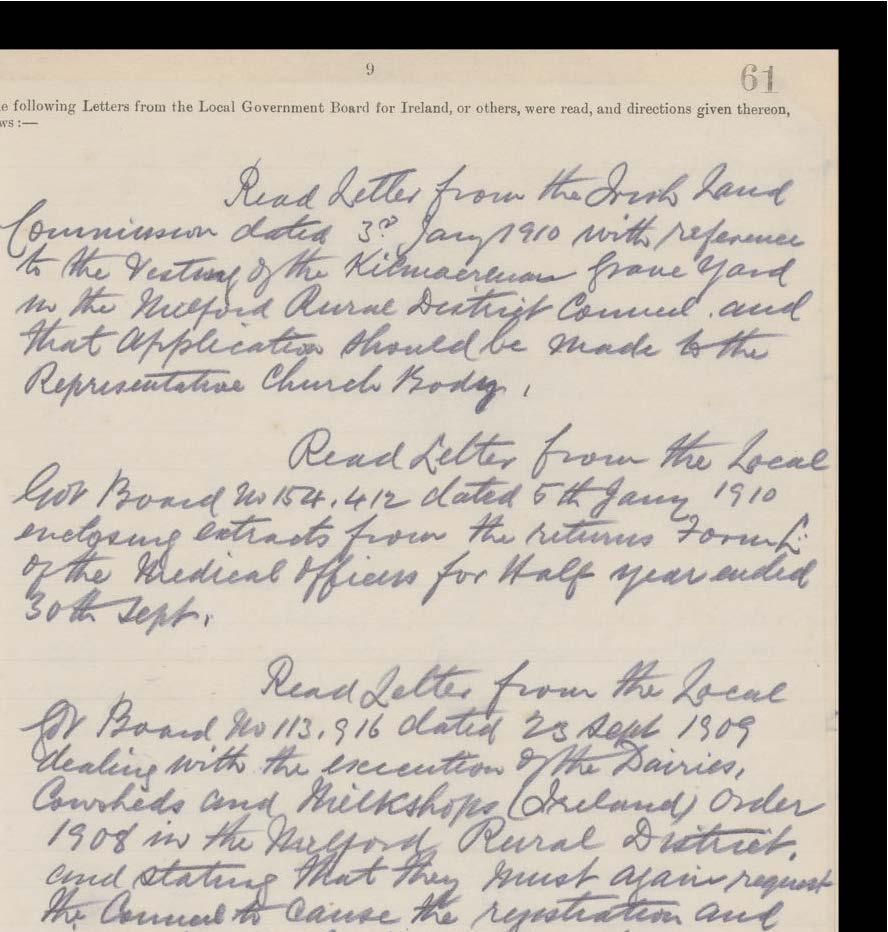 9
61
e following Letters from the Local Government Board for Ireland, or others, were read, and directions given thereon,
ws :—
Read Letter from the Irish Land
Commission dated 3rd Jany 1910 with reference
to the Vesting of the Kilmacrenan Grave Yard
in the Milford Rural District Council. and
that Application should be made to the
Representative Church Body.
Read Letter from the Local
Govt Board No 154,412 dated 5th Jany 1910
enclosing extracts from the returns Form L.
of the Medical Officers for Half year ended
30th Sept.
Read Letter from the Local
Govt Board No 113,916 dated 23 Sept 1909
dealing with the execution of the Dairies,
Cowsheds and Milkshops (Ireland) Order
1908 in the Milford Rural District,
and stating that they must again request
the Council to cause the registration and